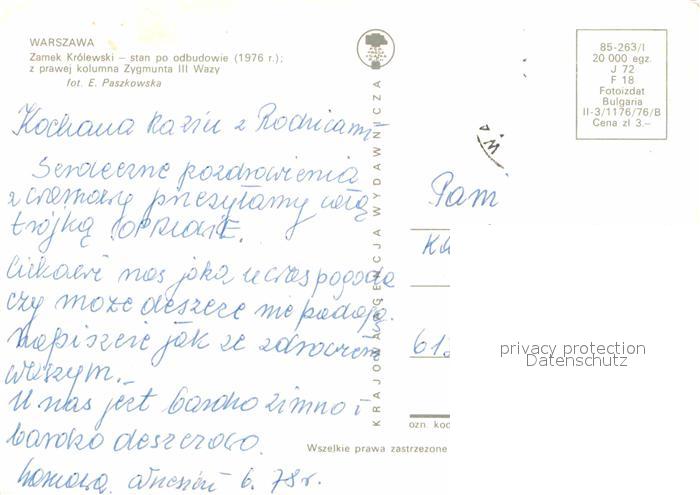 WARSZAWA
Zamek Królewski – stan po odbudowie (1976 r.);
z prawej kolumna Zygmunta III Wazy
fot. E. Paszkowska
Kochana Kaziu z Rodnicami
Serdeczne pozdrowienia
z przesyłamy całą
trójką.
Ciekawi nas jaka u was pogoda
czy może deszcze nie padają.
Napiszcie jak ze zdrowiem
waszym.
U nas jest bardzo zimno i
bardzo deszczowo.
6. 78 r.
KRAJOWA AGENCJA WYDAWNICZA
85-263/I
20 000 egz.
J 72
F 18
Fotoizdat
Bulgaria
II-3/1176/76/B
Cena zł 3.–
Pani
61
privacy protection
Datenschutz
ozn. kod
Wszelkie prawa zastrzeżone